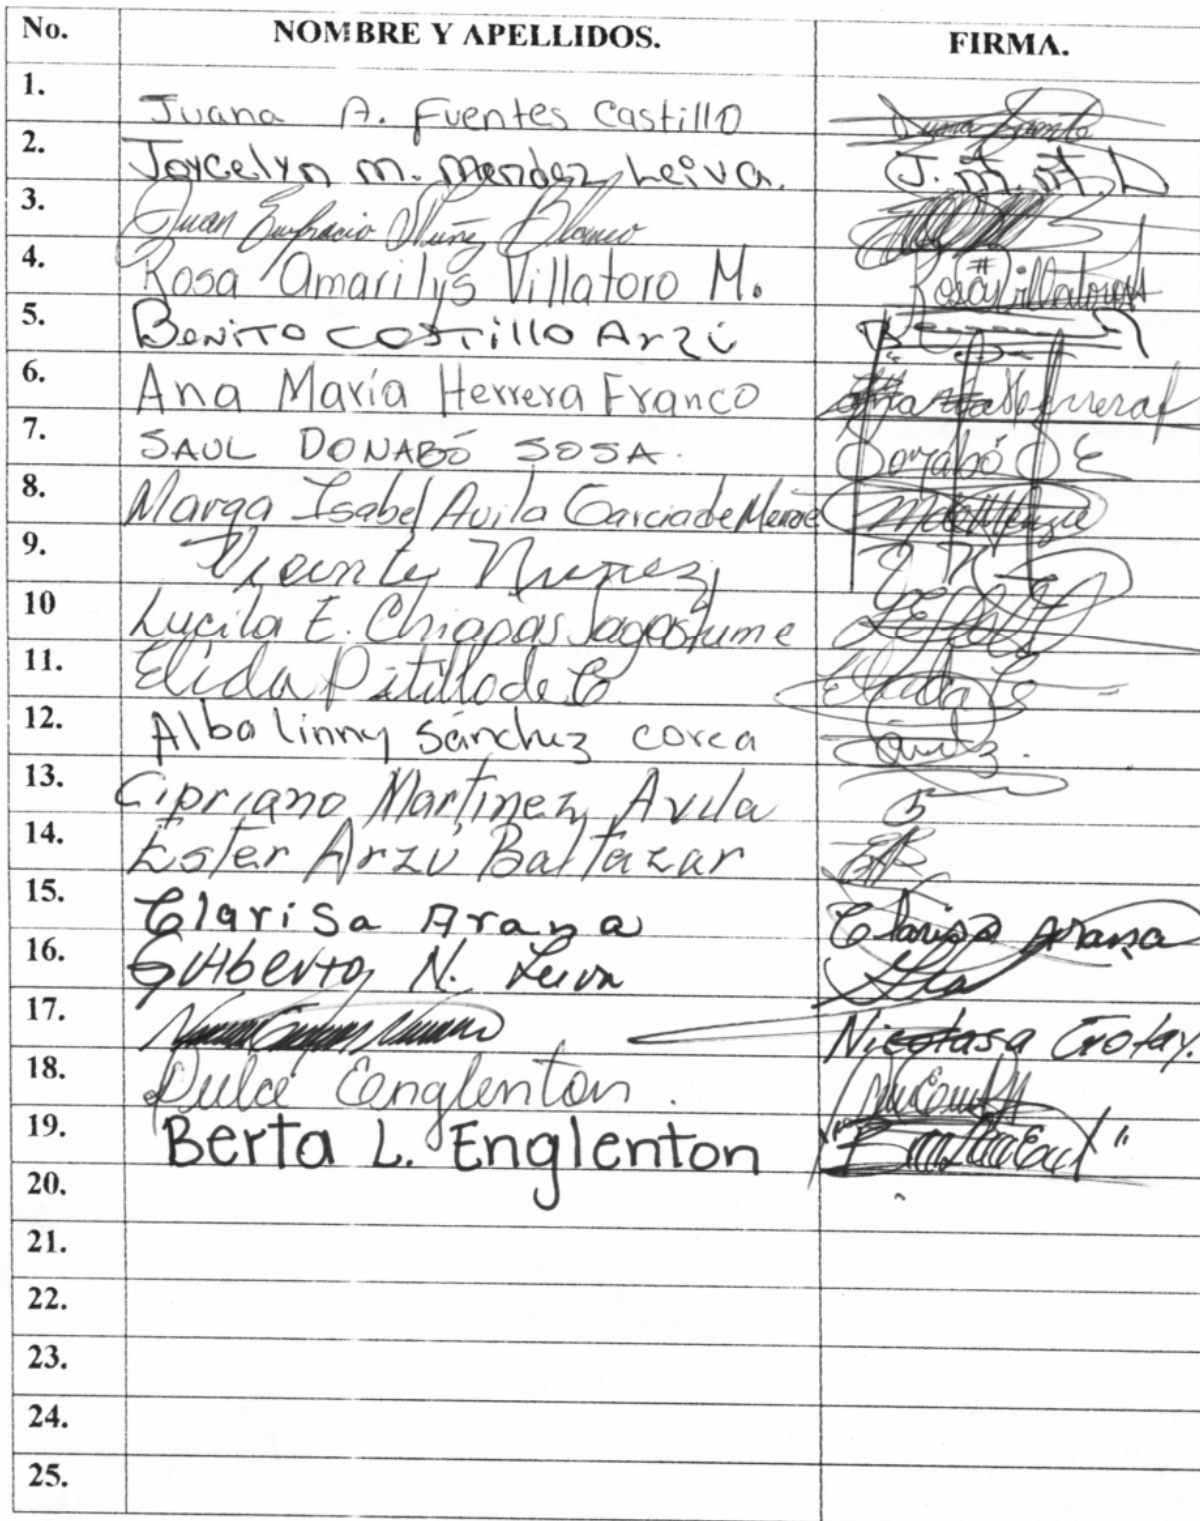 No. NOMBRE Y APELLIDOS. FIRMA.
1. Juana A. Fuentes Castillo
2. Joycelyn M. Mendez Leiva. J. M. M. L
3. Juan Eufracio Nuñez Blanco
4. Rosa Amarilys Villatoro M. Rosa Villatoro
5. Benito Castillo Arzú
6. Ana María Herrera Franco
7. SAUL DONABÓ SOSA. Donabó
8. Marga Isabel Avila Garcia de
9. Vicente Nuñez
10 Lucila E. Chiapas Sagastume
11. Elida Pitillo de C. Elida
12. Alba linny Sánchez corea
13. Cipriano Martinez Avila
14. Ester Arzú Baltazar
15. Clarisa Arana Clarisa Arana
16. Gilberto N. Leiva
17. Nicolasa Gotay.
18. Dulce Englenton.
19. Berta L. Englenton
20.
21.
22.
23.
24.
25.